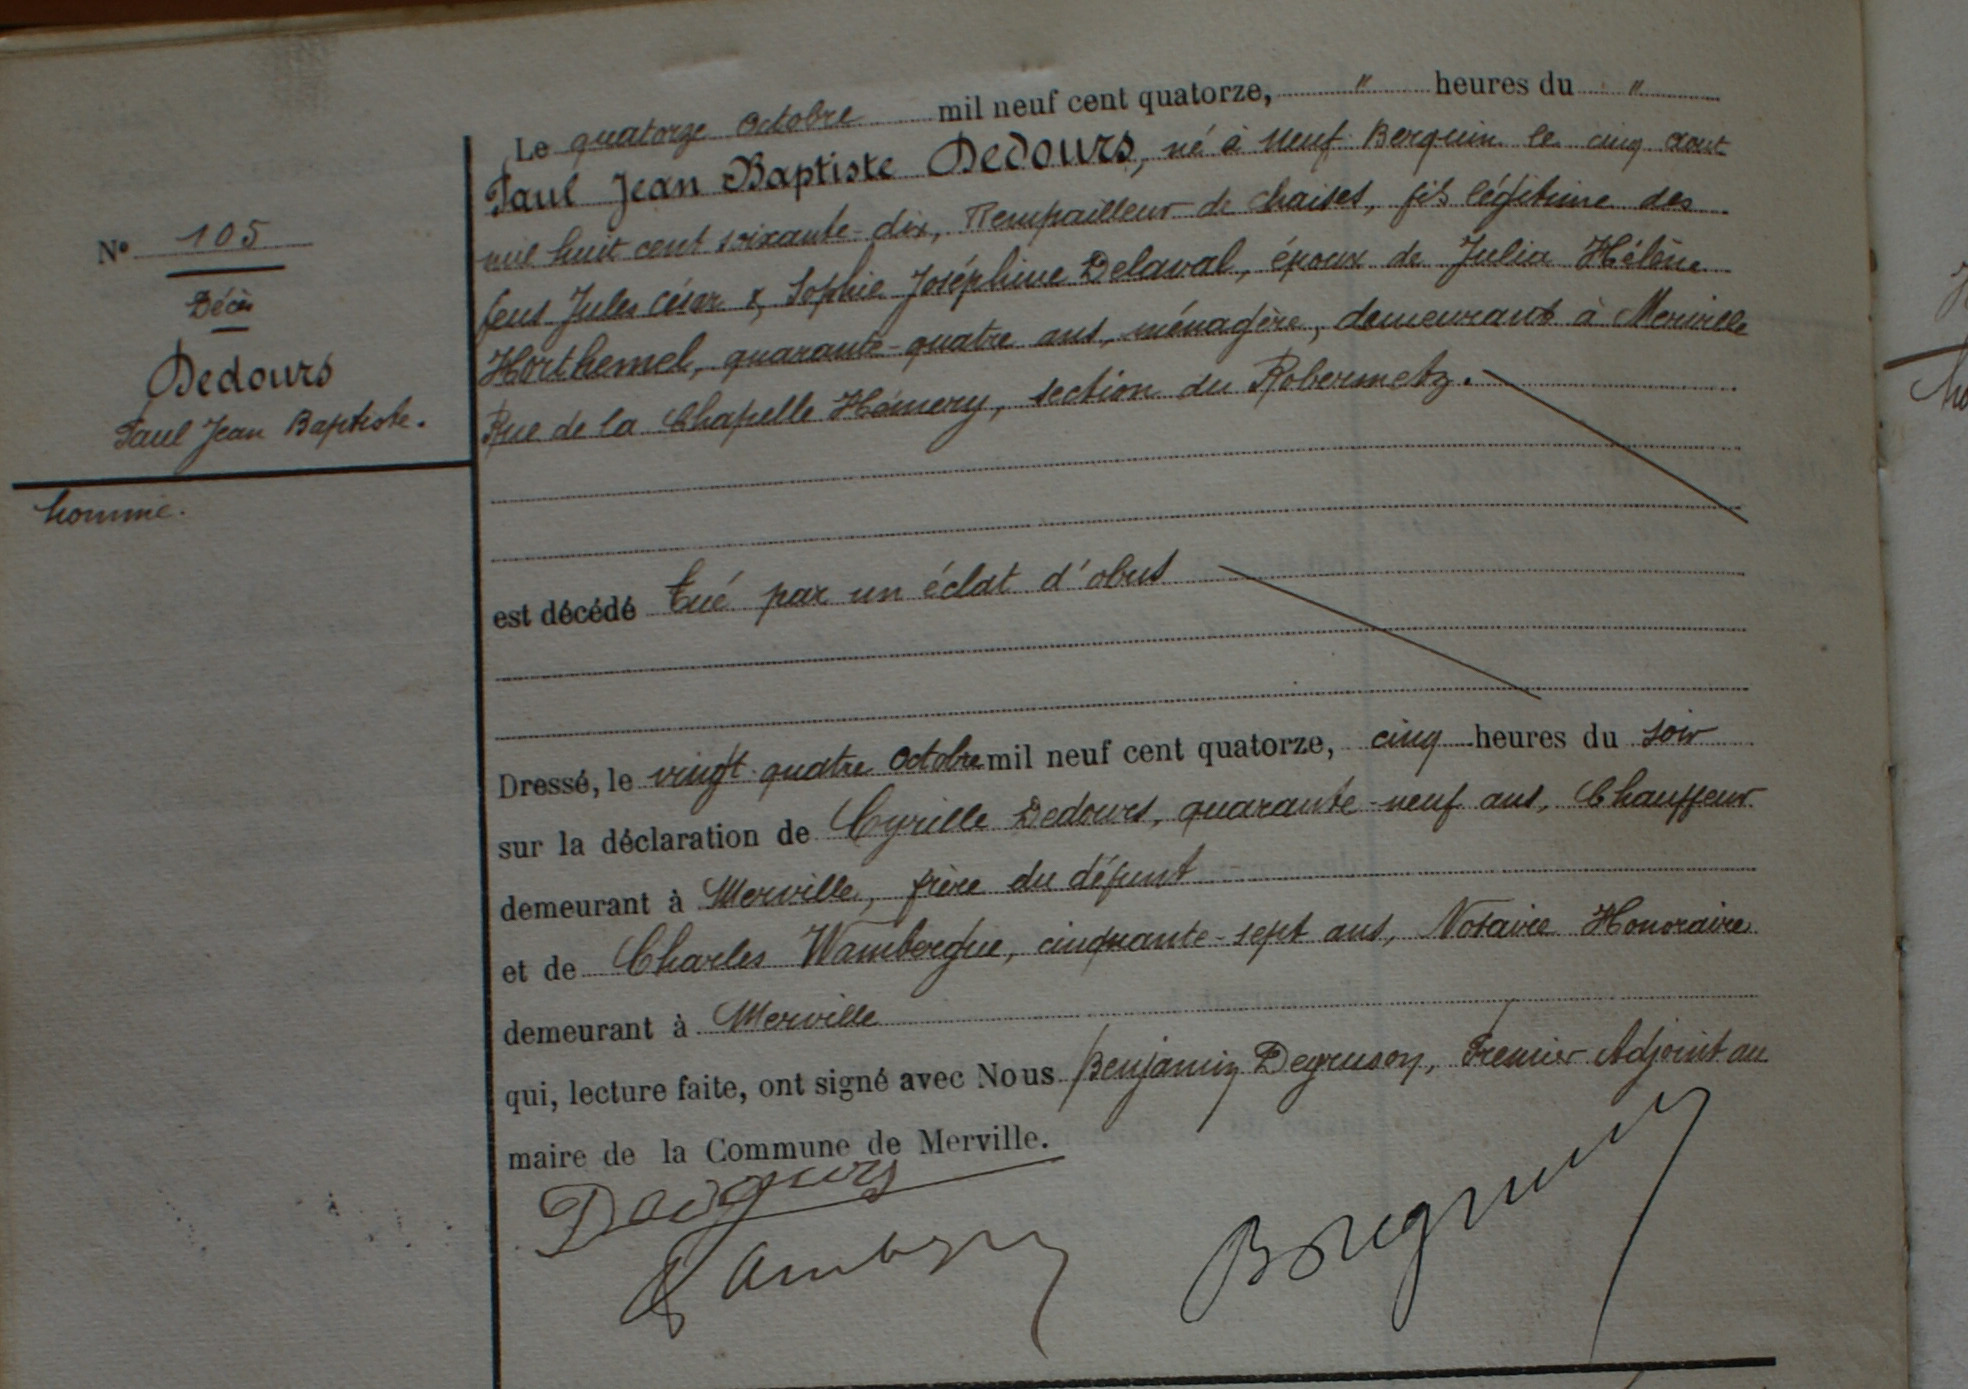 N° 105
Décès
Dedours
Paul Jean Baptiste.
homme.
Le quatorze Octobre mil neuf cent quatorze, " heures du "
Paul Jean Baptiste Dedours, né à Neuf Berquin le cinq aout
mil huit cent soixante-dix, Rempailleur de chaises, fils légitime des
feus Jules César & Sophie Joséphine Delaval, époux de Julia Hélène
Horthemel, quarante-quatre ans, ménagère, demeurant à Merville
Rue de la Chapelle Hémery, section du Robermetz.
est décédé tué par un éclat d'obus
Dressé, le vingt-quatre Octobre mil neuf cent quatorze, cinq heures du soir
sur la déclaration de Cyrille Dedours, quarante-neuf ans, Chauffeur
demeurant à Merville, frère du défunt
et de Charles Wambergue, cinquante-sept ans, Notaire Honoraire
demeurant à Merville
qui, lecture faite, ont signé avec Nous Benjamin Degruson, Premier Adjoint au
maire de la Commune de Merville.
Dedours